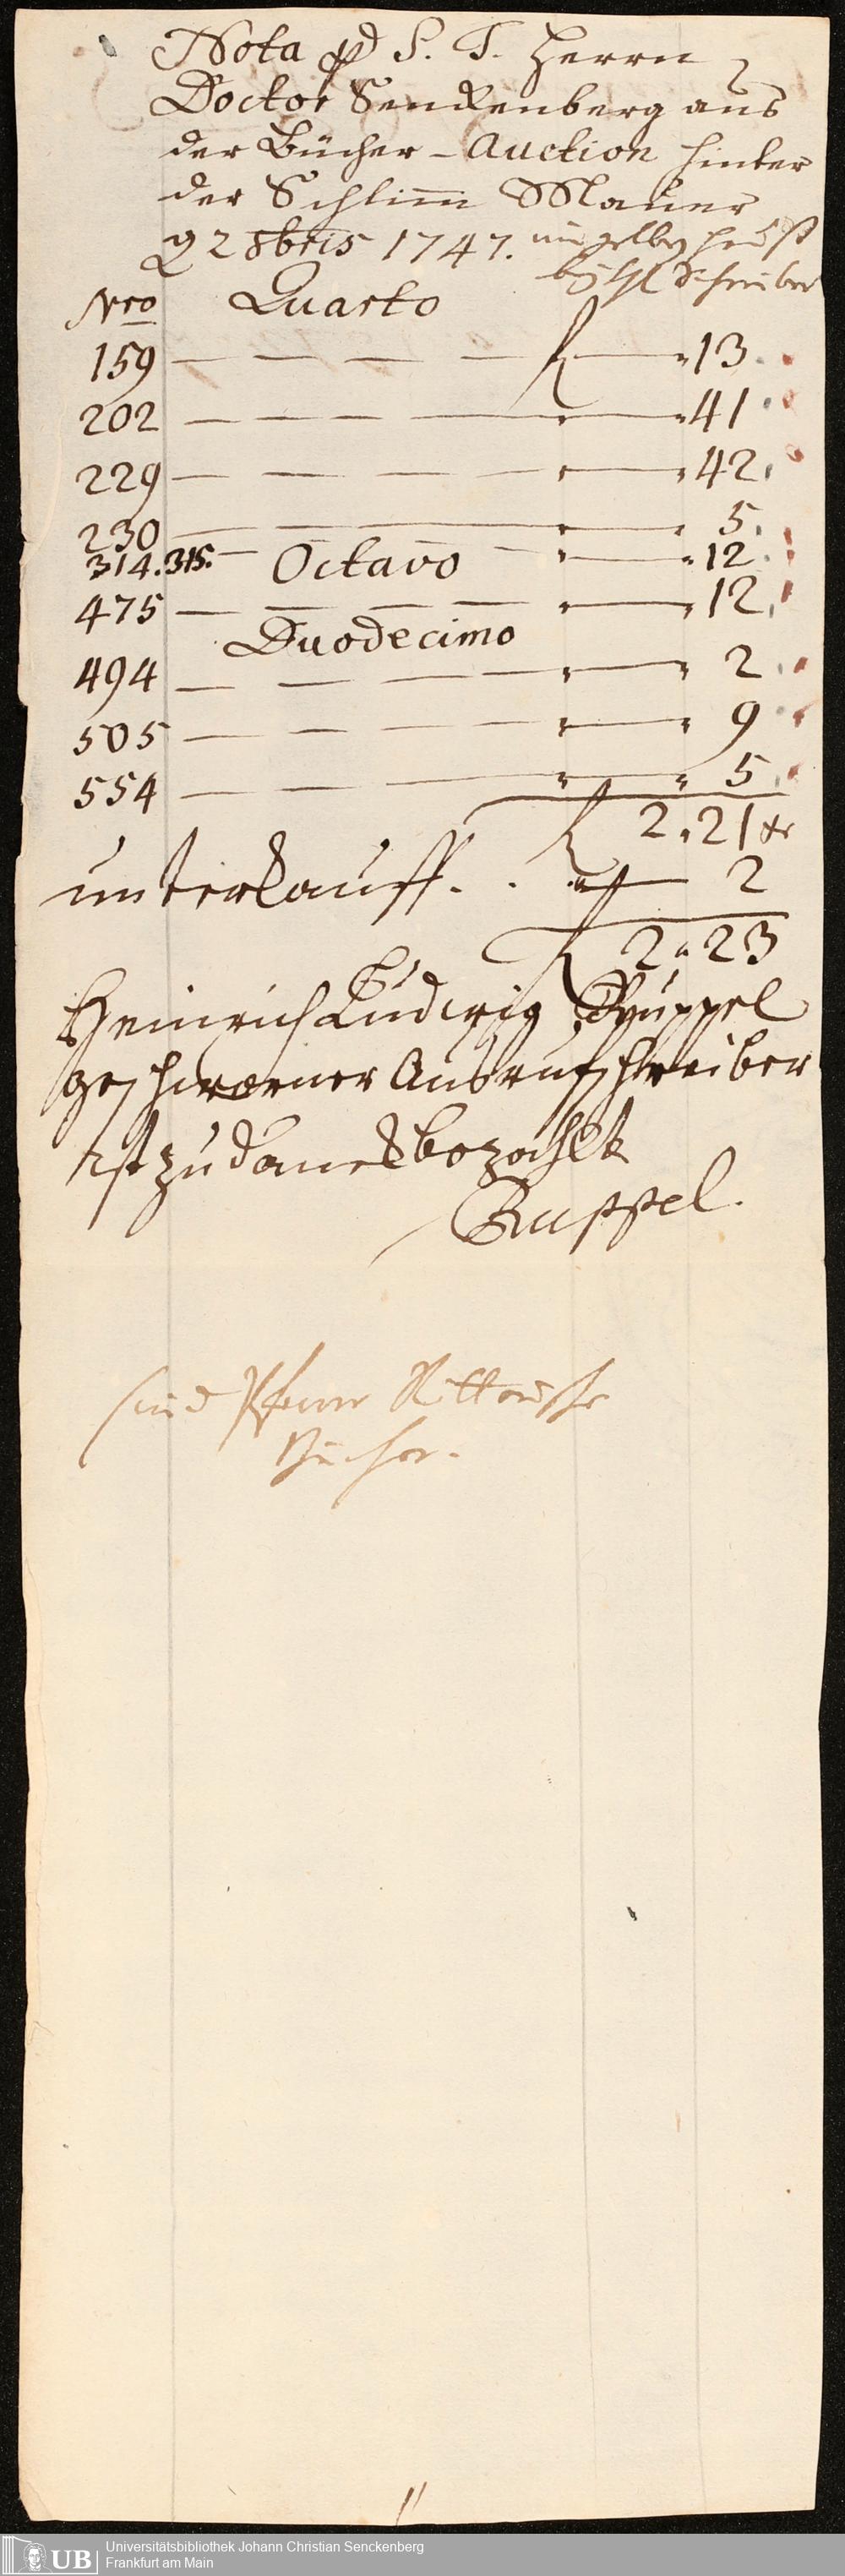 Nota pd S. T. Herrn
Doctor Senckenberg aus
der Bücher-Auction hinter
der Schlim Mauer
2 8bris 1747.
Nro Quarto
159 — — — — f — 13.
202 — — — — " — " 41
229 — — — — " — " 42.
230 — — — — " — " 5.
314.315. — Octavo — " — " 12.
475 — — — — " — " 12.
Duodecimo
494 — — — — " — " 2.
505 — — — — " — " 9
554 — — — — " — " 5.
f 2.21 xr
unterkauff. . " — 2
f 2 " 23
Heinrich Ludwig Ruppel
geschworner Ausrufschreiber
ist zu danck bezahlt
Ruppel.
sind Pfarrer
Bücher.
Universitätsbibliothek Johann Christian Senckenberg
Frankfurt am Main
UB